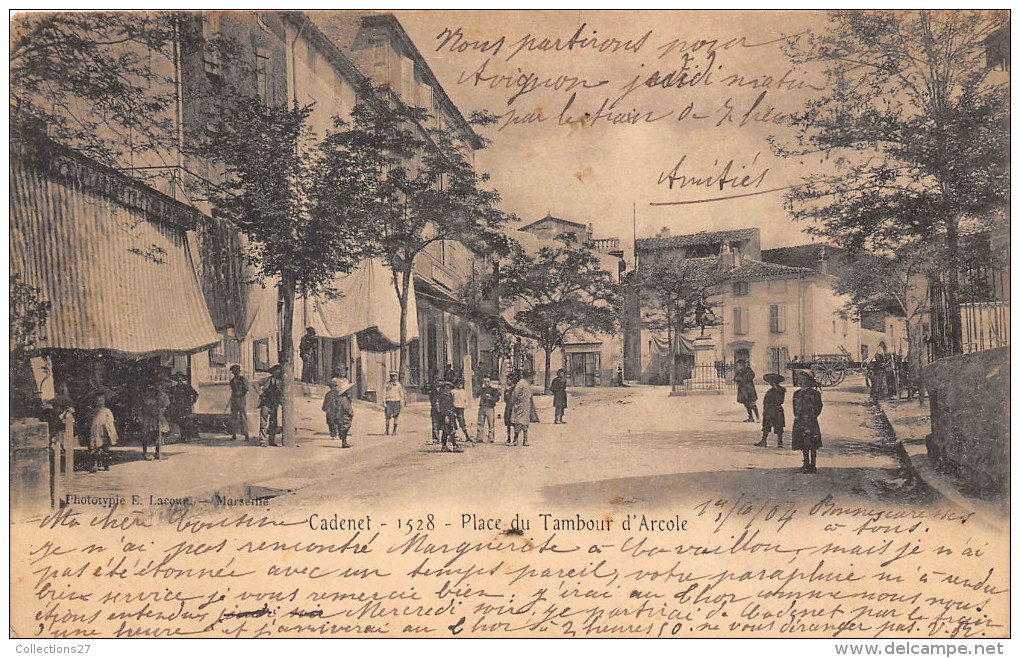 Nous partirons pour
Avignon jeudi matin
par le train de 7 heures
Amitiés
Phototypie E. Lacour. — Marseille
Cadenet - 1528 - Place du Tambour d'Arcole
12/10/04 Bonnes
à tous.
Ma chère Cousine
Je n'ai pas rencontré Marguerite à Cavaillon, mais je n'ai
pas été étonnée avec un temps pareil, votre parapluie m'a rendu
bien service je vous remercie bien. J'irai au Thor comme nous nous
étions entendus Mercredi soir. Je partirai de Cadenet par le train
d'une heure et j'arriverai au Thor à 2 heures 50. ne vous déranger pas
Collections27
www.delcampe.net